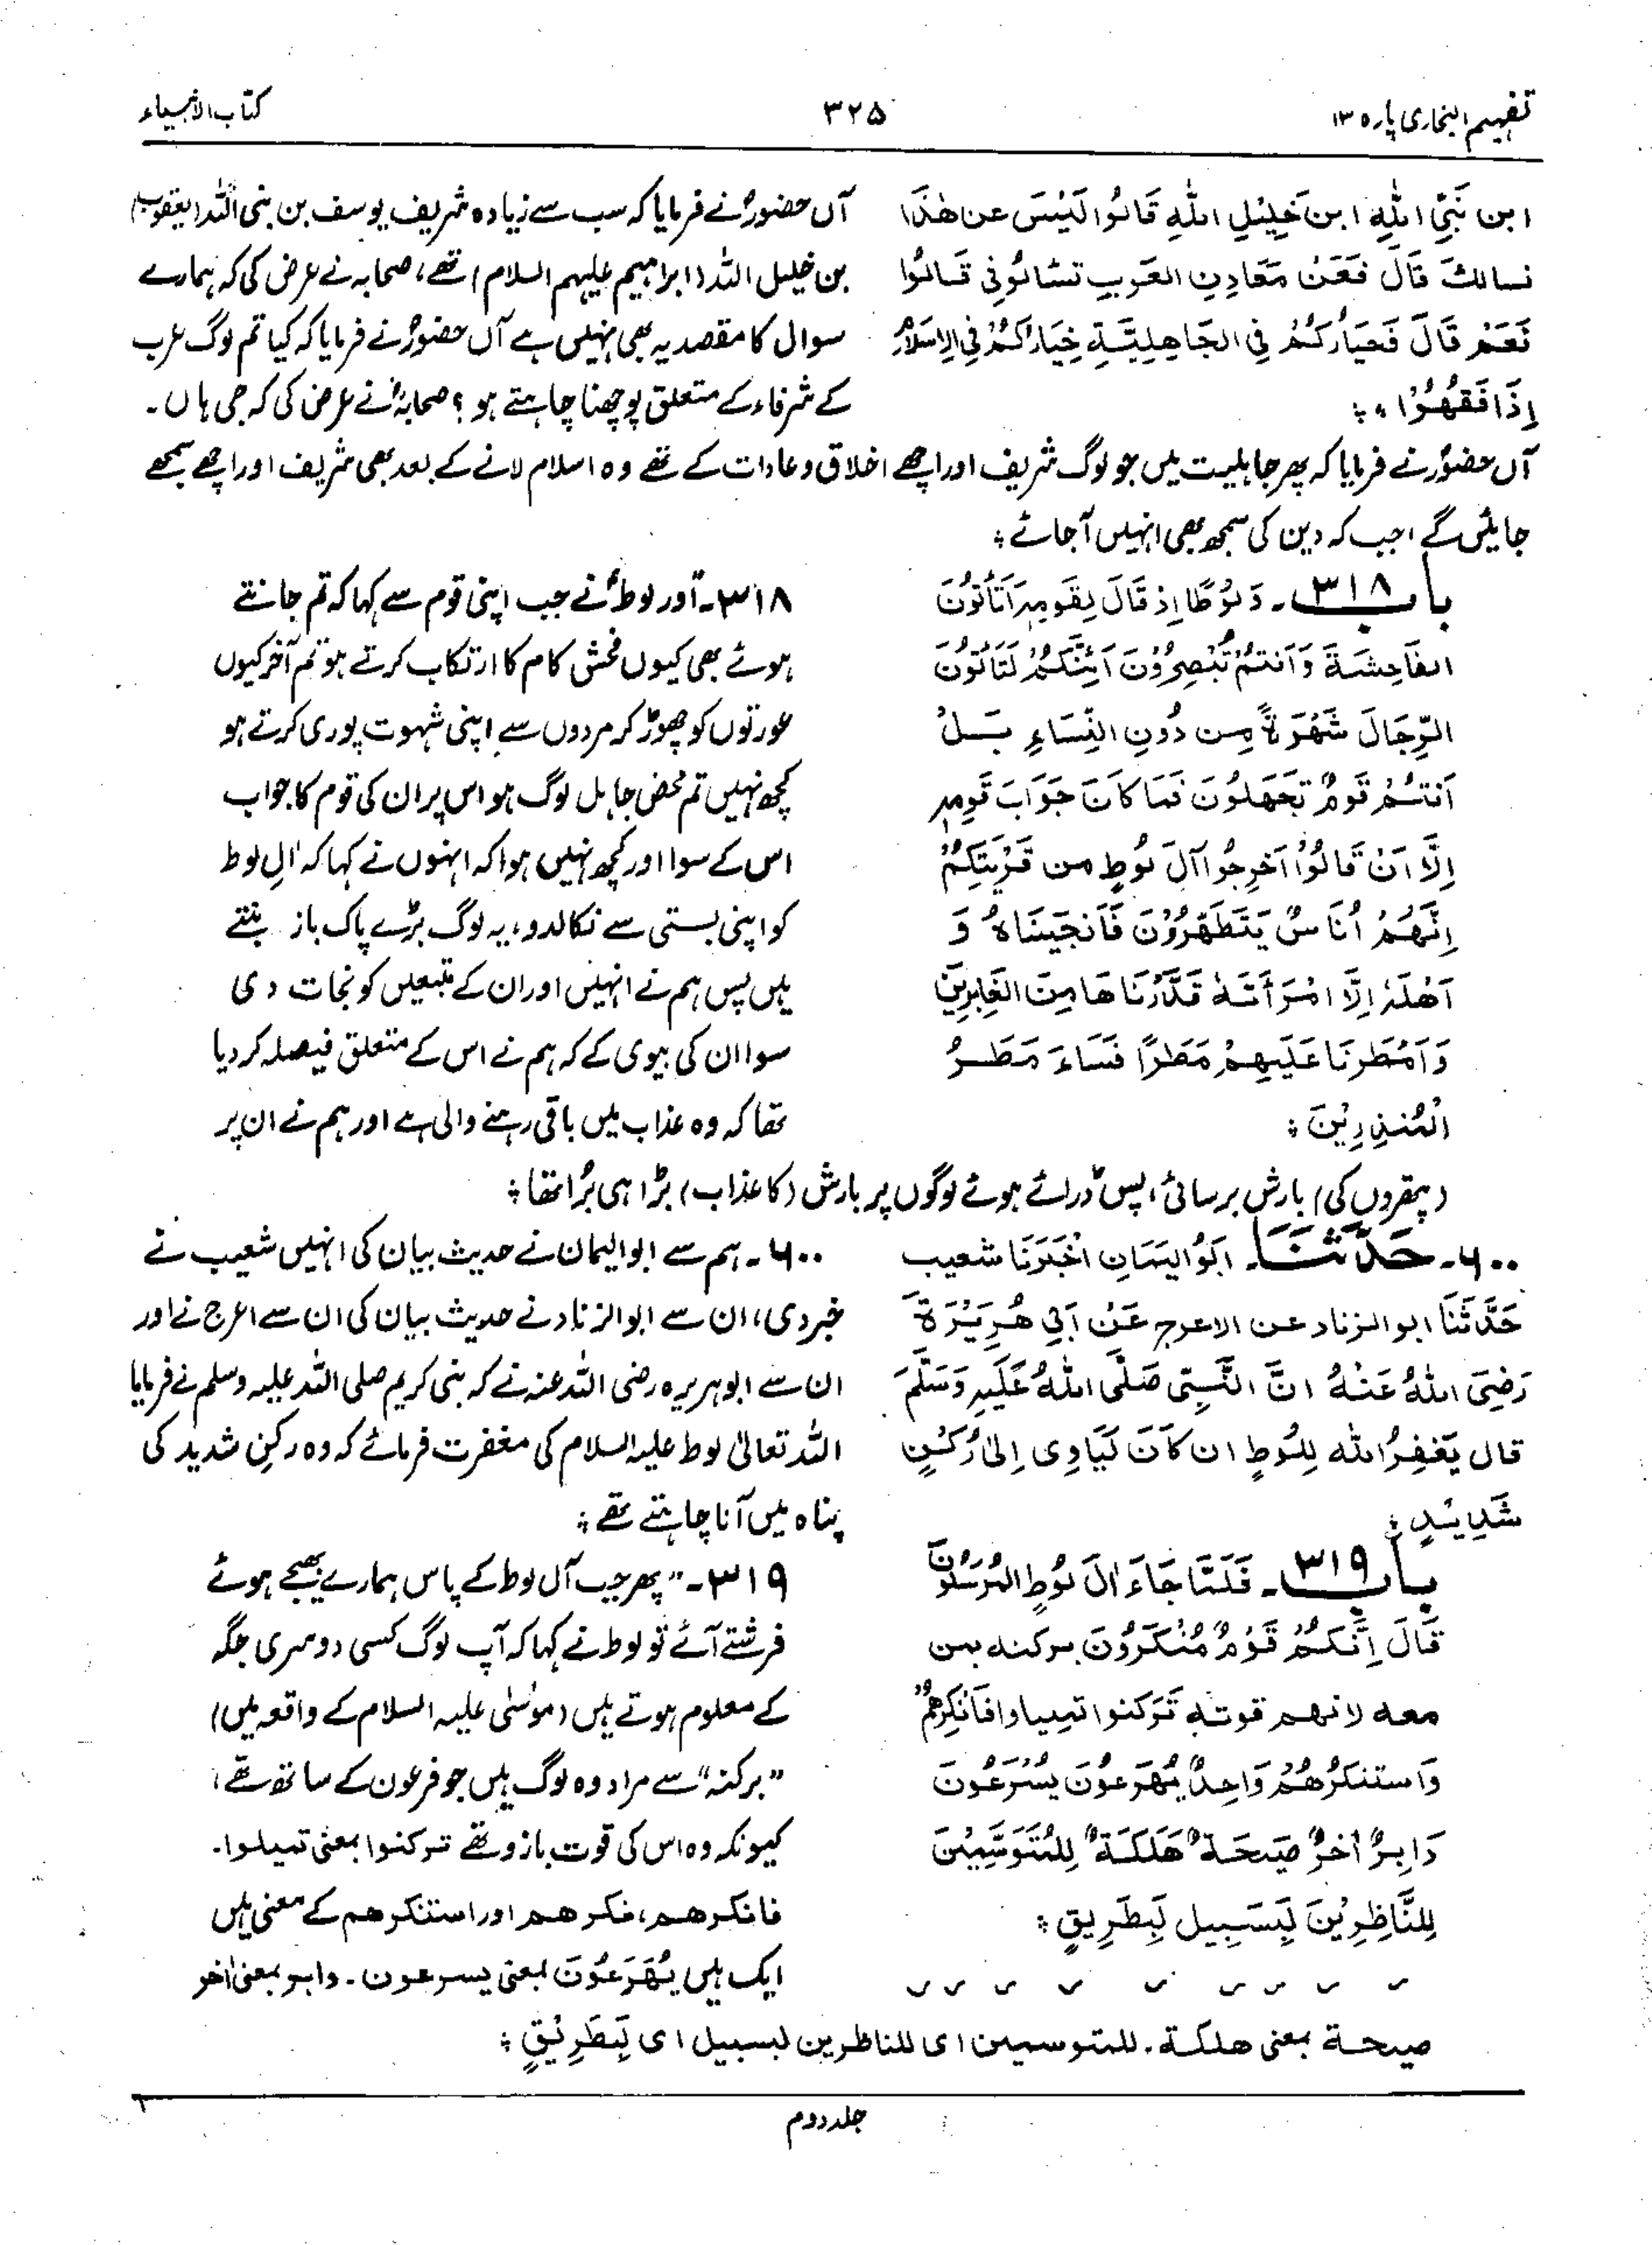 تفہیم البخاری پارہ ۱۳
۳۲۵
کتاب الانبیاء
ابن نَبِیِّ اللہِ ابن خَلِیْلِ اللہِ قَالُوا لَیْسَ عن ھٰذَا
نسالکَ قَالَ فَعَنْ مَعَادِنِ العَرَبِ تسْالُونِی قَالُوا
نَعَمْ قَالَ فَخِیَارُکُمْ فِی الجَاھِلِیَّۃِ خِیَارُکُمْ فِی الِاسْلَامِ
اِذَا فَقَھُوْا ؞
آں حضورؐ نے فرمایا کہ سب سے زیادہ شریف یوسف بن نبی اللہ (یعقوب)
بن خلیل اللہ (ابراہیم علیہم السلام) تھے، صحابہ نے عرض کی کہ ہمارے
سوال کا مقصد یہ بھی نہیں ہے آں حضورؐ نے فرمایا کہ کیا تم لوگ عرب
کے شرفاء کے متعلق پوچھنا چاہتے ہو؟ صحابہؓ نے عرض کی کہ جی ہاں۔
آں حضورؐ نے فرمایا کہ پھر جاہلیت میں جو لوگ شریف اور اچھے اخلاق و عادات کے تھے وہ اسلام لانے کے بعد بھی شریف اور اچھے سمجھے
جائیں گے، جب کہ دین کی سمجھ بھی انہیں آجائے ؞
باب ۳۱۸۔ وَلُوْطًا اِذ قَالَ لِقَومِہٖ اَتَأتُوْنَ
الفَاحِشَۃَ وَاَنتُمْ تُبْصِرُوْنَ اَئِنَّکُمْ لَتَاتُوْنَ
الرِّجَالَ شَھْوَۃً مِن دُوْنِ النِّسَاءِ بَلْ
اَنتُمْ قَومٌ تَجْھَلُونَ فَمَا کَانَ جَوَابَ قَومِہٖ
اِلَّا اَنْ قَالُوْا اَخرِجُوا آلَ لُوطٍ من قَرْیَتِکُمْ
اِنَّھُمْ اُنَاسٌ یَتَطَھَّرُوْنَ فَاَنجَینَاہُ وَ
اَھْلَہٗ اِلَّا امْرَأَتَہٗ قَدَّرْنَا ھَا مِنَ الغَابِرِیْنَ
وَاَمْطَرنَا عَلَیھِمْ مَطَرًا فَسَاءَ مَطَرُ
الْمُنْذِرِیْنَ ؞
۳۱۸۔ اور لوطؑ نے جب اپنی قوم سے کہا کہ تم جانتے
ہوئے بھی کیوں فحش کام کا ارتکاب کرتے ہو تم آخر کیوں
عورتوں کو چھوڑ کر مردوں سے اپنی شہوت پوری کرتے ہو
کچھ نہیں تم محض جاہل لوگ ہو اس پر ان کی قوم کا جواب
اس کے سوا اور کچھ نہیں ہوا کہ انہوں نے کہا کہ اٰلِ لوط
کو اپنی بستی سے نکالدو، یہ لوگ بڑے پاک باز بنتے
ہیں پس ہم نے انہیں اور ان کے متبعین کو نجات دی
سوا ان کی بیوی کے کہ ہم نے اس کے متعلق فیصلہ کردیا
تھا کہ وہ عذاب میں باقی رہنے والی ہے اور ہم نے ان پر
(پتھروں کی) بارش برسائی، پس ڈرائے ہوئے لوگوں پر بارش (کا عذاب) بڑا ہی بُرا تھا ؞
۶۰۰۔ حَدَّثَنَا۔ اَبُو الیَمَانِ اَخْبَرَنَا شعیب
حَدَّثَنَا ابو الزناد عن الاعرج عَنْ اَبِی ھُرَیْرَۃَ
رَضِیَ اللہُ عَنْہُ انَّ النَّبِیّ صَلَّی اللہُ عَلَیہِ وَسَلَّمَ
قال یَغفِرُ اللہ لِلُوطٍ ان کَانَ لَیَاوِی اِلیٰ رُکْنٍ
شَدِیْدٍ ؞
۶۰۰۔ ہم سے ابو الیمان نے حدیث بیان کی انہیں شعیب نے
خبر دی، ان سے ابو الزناد نے حدیث بیان کی ان سے اعرج نے اور
ان سے ابوہریرہ رضی اللہ عنہ نے کہ نبی کریم صلی اللہ علیہ وسلم نے فرمایا
اللہ تعالیٰ لوط علیہ السلام کی مغفرت فرمائے کہ وہ رکنِ شدید کی
پناہ میں آنا چاہتے تھے ؞
باب ۳۱۹۔ فَلَمَّا جَاءَ اٰلَ لُوطٍ المُرْسَلُوْنَ
قَالَ اِنَّکُمْ قَوْمٌ مُنْکَرُوْنَ برکنہ بمن
معہ لانھم قوتہٖ تَرکنوا تمیلوا فَاَنْکَرَھُمْ
وَاستنکرُھُمْ وَاحِدٌ یُھْرَعُوْنَ یُسْرَعُوْنَ
دَابِرٌ اٰخرٌ صَیْحَۃٌ ھَلَکَۃٌ لِلْمُتَوَسِّمِیْنَ
لِلنَّاظِرِیْنَ لَبِسَبِیلٍ لَبِطَرِیقٍ ؞
۳۱۹۔ ”پھر جب آل لوط کے پاس ہمارے بھیجے ہوئے
فرشتے آئے تو لوط نے کہا کہ آپ لوگ کسی دوسری جگہ
کے معلوم ہوتے ہیں (موسٰی علیہ السلام کے واقعہ میں)
”برکنہ“ سے مراد وہ لوگ ہیں جو فرعون کے ساتھ تھے،
کیونکہ وہ اس کی قوت بازو تھے ترکنوا بمعنی تمیلوا۔
فانکرھم، نکرھم اور استنکرھم کے معنی ہیں
ایک ہیں یُھْرَعُوْنَ بمعنی یسرعون۔ دابر بمعنی اٰخر
صیحۃ بمعنی ھلکۃ۔ للمتوسمین ای للناظرین لبسبیل ای لَبِطَرِیْقٍ ؞
جلد دوم